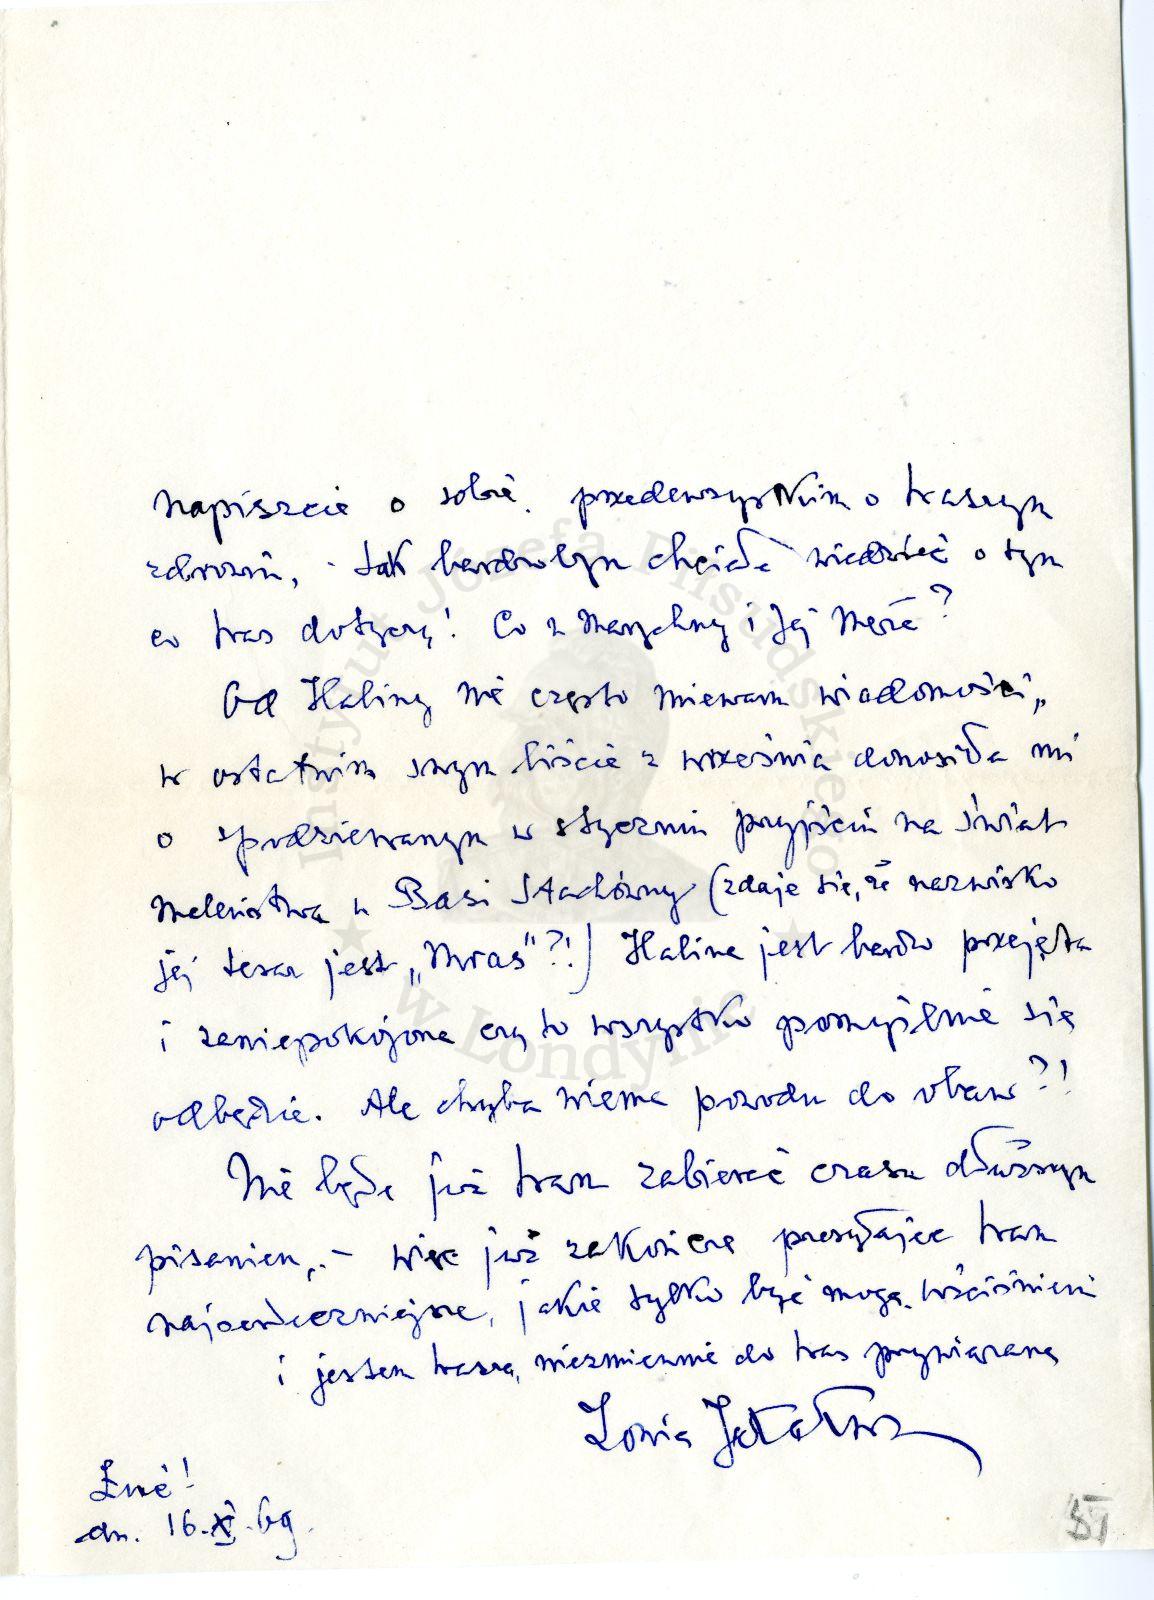 napiszcie o sobie, przedewszystkim o Waszym
zdrowiu, - tak bardzobym chciała wiedzieć o tym
co Was dotyczy! Co z Marychny i Jej Męża?
Od Haliny nie często miewam wiadomości,
w ostatnim swym liście z września donosiła mi
o spodziewanym w styczniu przyjściu na świat
maleństwa u Basi Stachówny (zdaje się, że nazwisko
jej teraz jest „Mras"?!) Halina jest bardzo przejęta
i zaniepokojona czy to wszystko pomyślnie się
odbędzie. Ale chyba niema powodu do obaw?!
Nie będę już Wam zabierać czasu dłuższym
pisaniem, - więc już zakończę przesyłając Wam
najserdeczniejsze, jakie tylko być mogą, uściśnienia
i jestem Waszą, niezmiennie do Was przywiązaną
Zosia
Łódź!
dn. 16.XI.69.
Instytut Józefa Piłsudskiego
w Londynie